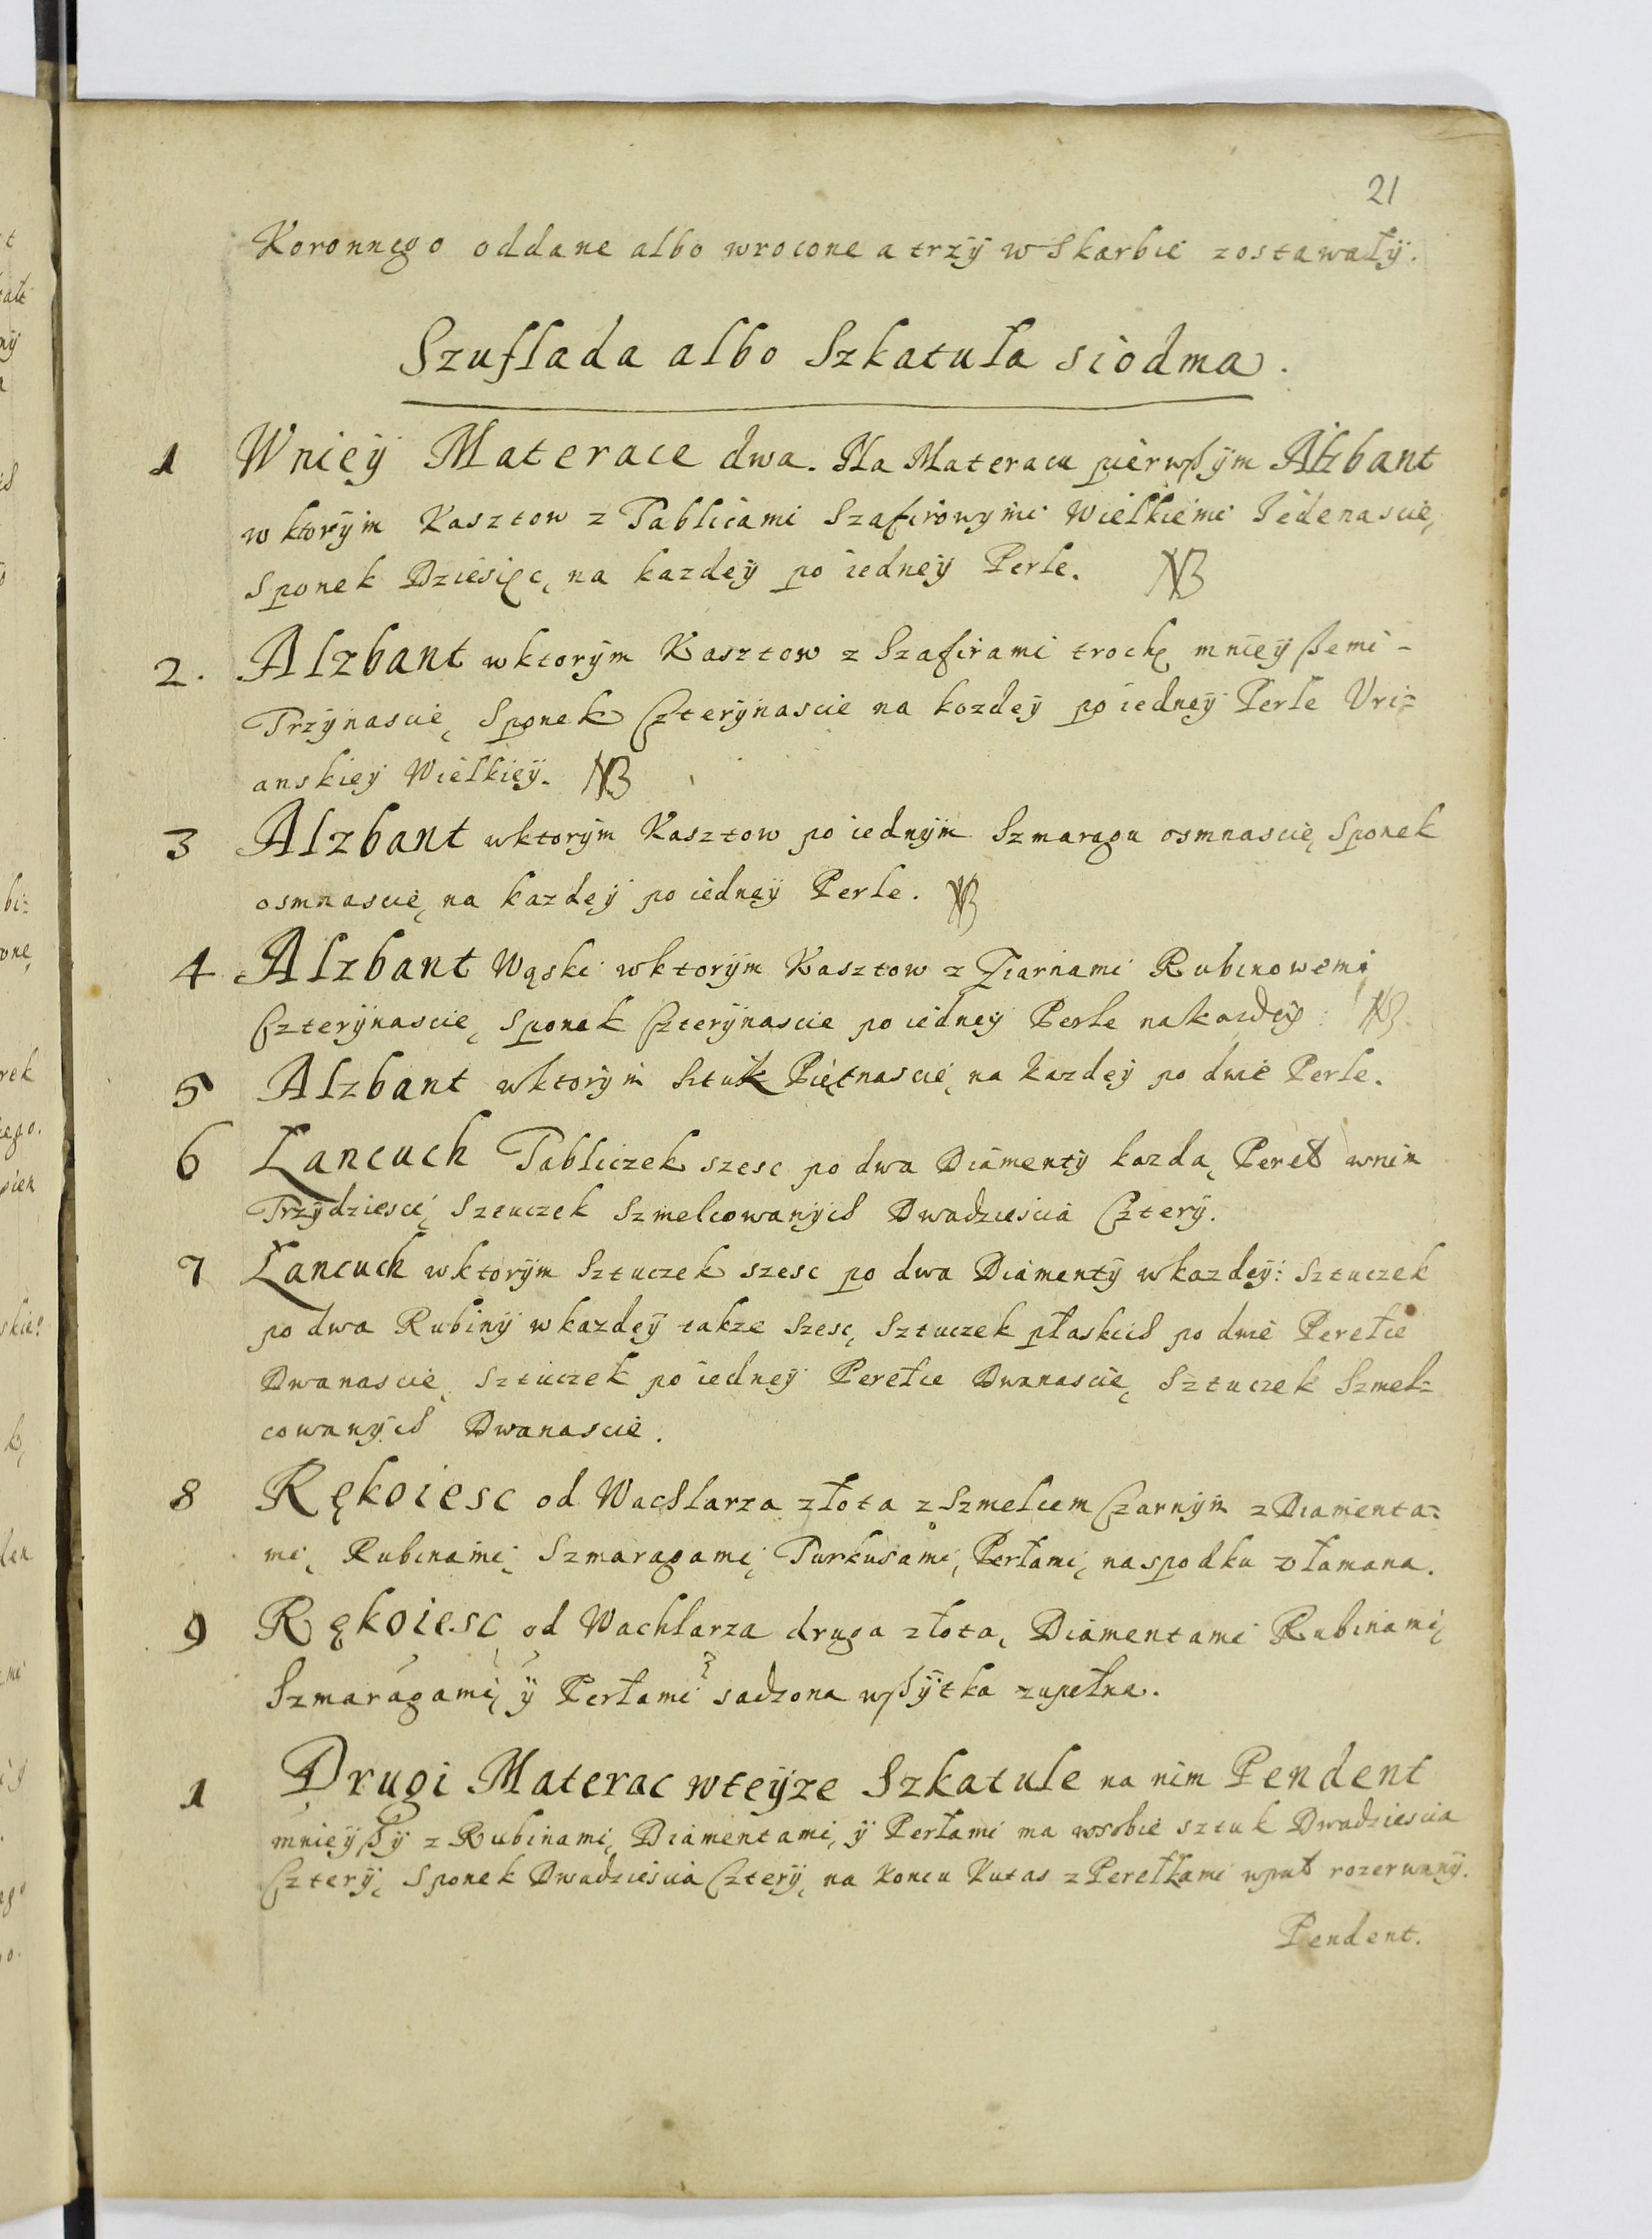 21
Koronnego oddane albo wrocone a trzÿ w Skarbie zostawałÿ.
Szuflada albo Szkatuła siodma.
1 Wnieÿ Materace dwa. Na Materacu pierwßÿm Alzbant
w ktorÿm Kasztow z Tablicami Szafirowymi Wielkiemi Jedenascie,
Sponek Dziesięc, na kazdeÿ po iedneÿ Perle. NB
2. Alzbant wktorÿm Kasztow z Szafirami trochę mnieÿßemi -
Trzÿnascie, Sponek Czterÿnascie na kozdeÿ po iedneÿ Perle Vri=
anskieÿ Wielkieÿ. NB
3 Alzbant wktorÿm Kasztow po iednÿm Szmaragu osmnascie, Sponek
osmnascie, na kazdeÿ po iedneÿ Perle. NB
4 Alzbant Wąski wktorÿm Kasztow z Ziarnami Rubinowemi,
Czterÿnascie, Sponek Czterÿnascie po iedneÿ Perle na kazdeÿ: NB
5 Alzbant wktorÿm Sztuk Piętnascie, na kazdeÿ po dwie Perle.
6 Łancuch Tabliczek szesc po dwa Diamentÿ kazda, Pereł wnim
Trzÿdziesci, Sztuczek Szmelcowanÿch Dwadziescia Czterÿ.
7 Łancuch wktorÿm Sztuczek szesc po dwa Diamentÿ wkazdeÿ: Sztuczek
po dwa Rubinÿ wkazdeÿ takze Szesc, Sztuczek płaskich po dwie Perełce
Dwanascie, Sztuczek po iedneÿ Perełce Dwanascie, Sztuczek Szmel=
cowanÿch Dwanascie.
8 Rękoiesc od Wachlarza złota z Szmelcem Czarnÿm z Diamenta=
mi, Rubinami, Szmaragami, Turkusami, Perłami, naspodku złamana.
9 Rękoiesc od Wachlarza druga złota, Diamentami Rubinami,
Szmaragami, ÿ Perłami sadzona wßÿtka zupełna.
1 Drugi Materac wteÿze Szkatule na nim Pendent
mnieÿßÿ z Rubinami, Diamentami, ÿ Perłami ma wsobie sztuk Dwadziescia
Czterÿ, Sponek Dwadziescia Czterÿ, na Koncu Kutas z Perełkami wpuł rozerwanÿ.
Pendent.